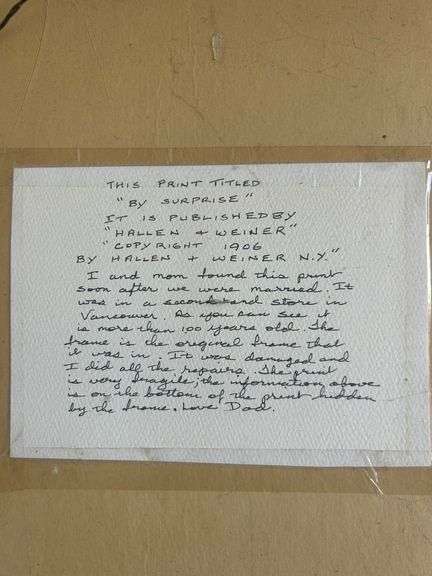 THIS PRINT TITLED
"BY SURPRISE"
IT IS PUBLISHED BY
"HALLEN & WEINER"
"COPYRIGHT 1906
BY HALLEN & WEINER N.Y."
I and mom found this print
soon after we were married. It
was in a second-hand store in
Vancouver. As you can see it
is more than 100 years old. The
frame is the original frame that
it was in; It was damaged and
I did all the repairs. The print
is very fragile; the information above
is on the bottom of the print hidden
by the frame. Love Dad.